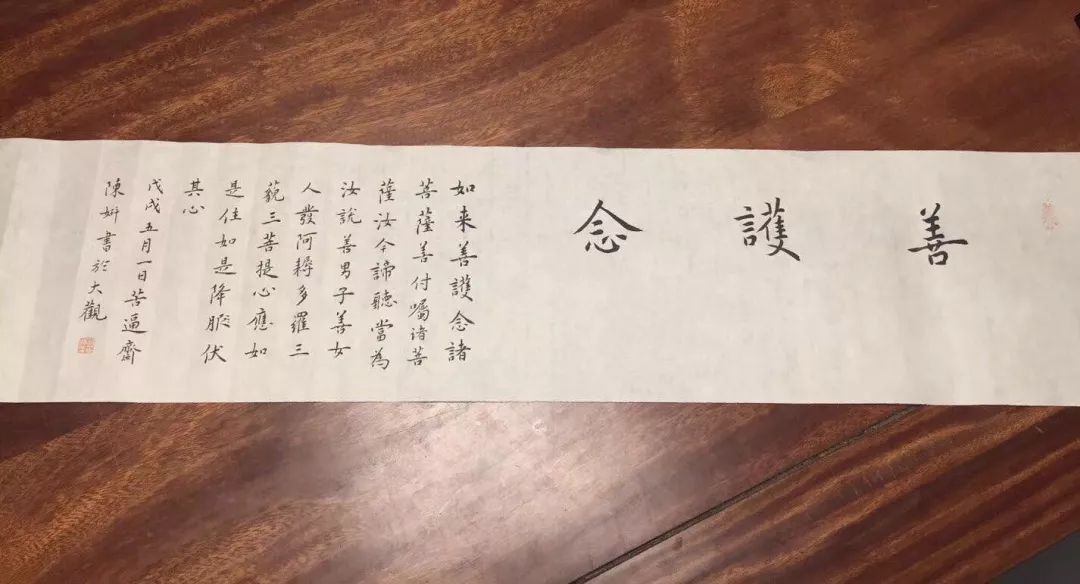 善護念
如来善護念諸
菩薩善付囑诸菩
薩汝今諦聽當為
汝説善男子善女
人發阿耨多羅三
藐三菩提心應如
是住如是降伏
其心
戊戌五月一日苦逼齋
陳妍書於大觀